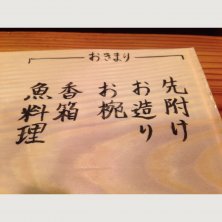 おきまり
先附け
お造り
お椀
香箱
魚料理